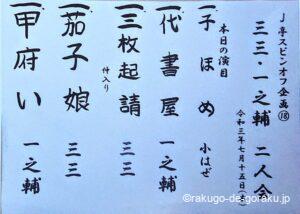 J亭スピンオフ企画⑱
三三・一之輔 二人会
令和三年七月十五日(木)
本日の演目
一子ほめ 小はぜ
一代書屋 一之輔
一三枚起請 三三
仲入り
一茄子娘 三三
一甲府い 一之輔
©rakugo-de-goraku.jp